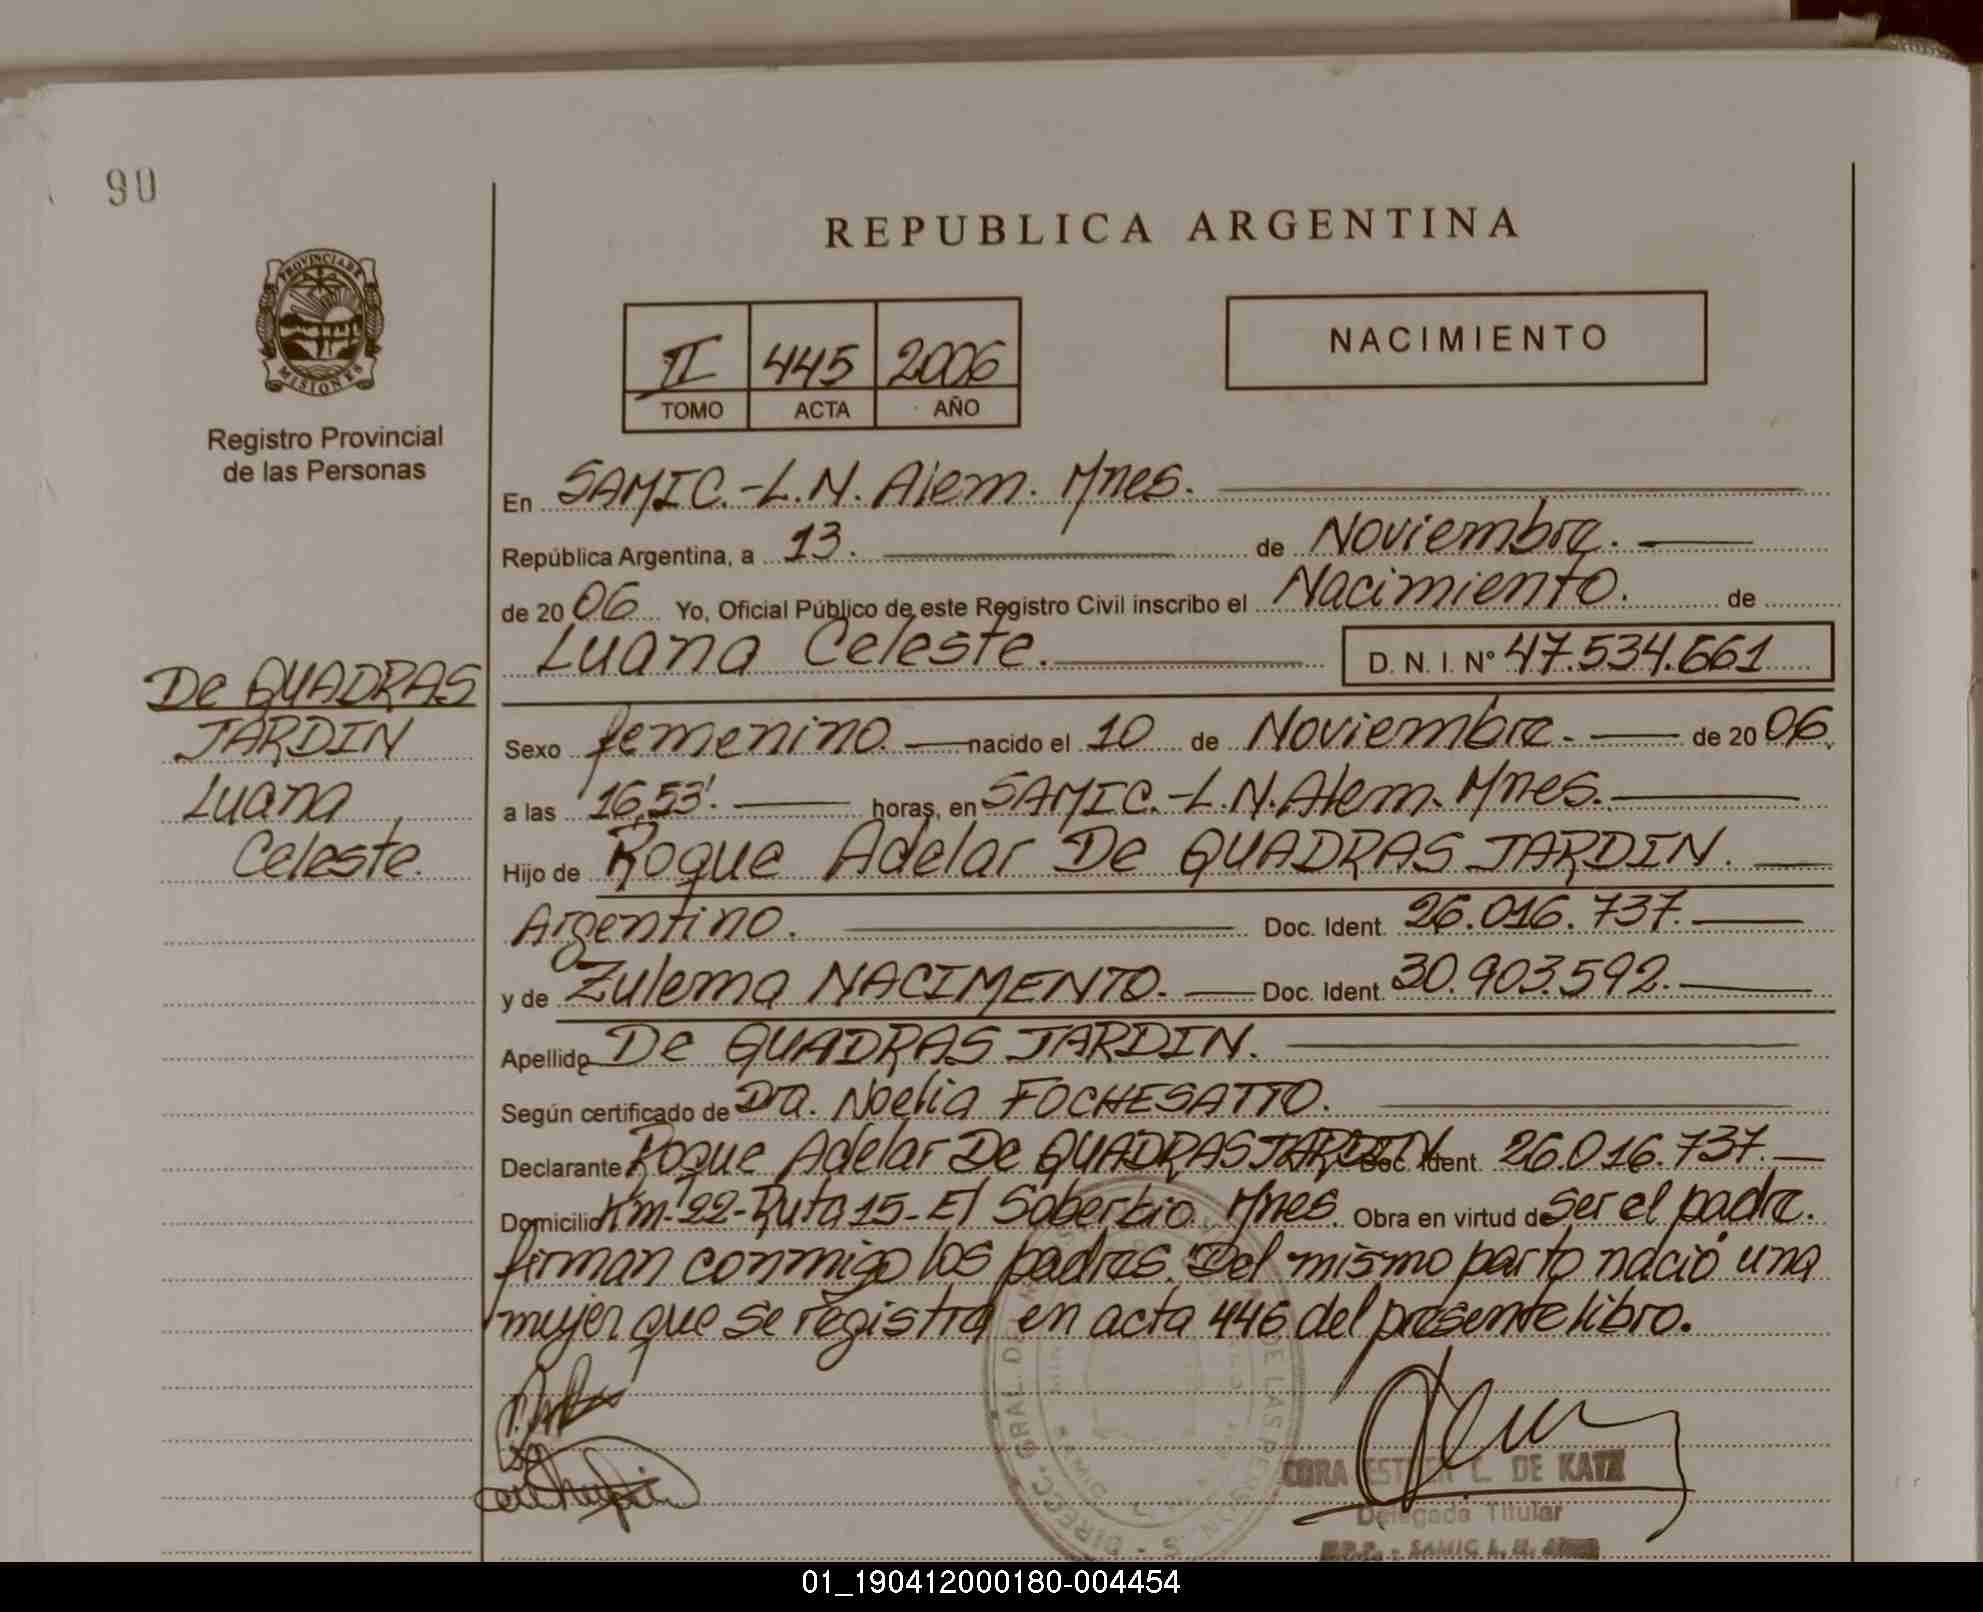 90
REPUBLICA ARGENTINA
PROVINCIA DE
MISIONES
Registro Provincial
de las Personas
II 445 2006
TOMO ACTA AÑO
NACIMIENTO
En SAMIC.-L.N. Alem. Mnes.
República Argentina, a 13. de Noviembre.
de 2006 Yo, Oficial Público de este Registro Civil inscribo el Nacimiento. de
Luana Celeste. D. N. I. Nº 47.534.661
De QUADRAS
JARDIN
Luana
Celeste.
Sexo femenino nacido el 10 de Noviembre. de 2006.
a las 16,53'. horas, en SAMIC.-L.N. Alem. Mnes.
Hijo de Roque Adelar De QUADRAS JARDIN.
Argentino. Doc. Ident. 26.016.737.
y de Zulema NACIMENTO. Doc. Ident. 30.903.592.
Apellido De QUADRAS JARDIN.
Según certificado de Dra. Noelia FOCHESATTO.
Declarante Roque Adelar De QUADRAS JARDIN Doc. Ident. 26.016.737.
Domicilio Km-22-Ruta 15-El Soberbio Mnes. Obra en virtud de ser el padre.
firman conmigo los padres. Del mismo parto nació una
mujer que se registra en acta 446 del presente libro.
CORA ESTHER C. DE KATZ
Delegada Titular
01_190412000180-004454